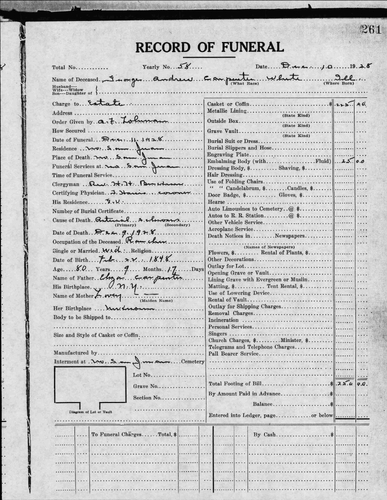 261
RECORD OF FUNERAL
Total No. Yearly No. 58 Date Dec. 10 1928
Name of Deceased George Andrew Carpenter White Ill
(What Born) (Where Born)
Husband
Wife Widow of
Son Daughter
Charge to Estate
Address
Order Given by A. F. Lohman
How Secured
Date of Funeral Dec. 11, 1928
Residence No. San Juan
Place of Death No. San Juan
Funeral Services at No. San Juan
Time of Funeral Service
Clergyman Rev. H. H.
Certifying Physician coroner
His Residence
Number of Burial Certificate
Cause of Death Arterial
(Primary) (Secondary)
Date of Death Dec 9, 1928
Occupation of the Deceased Rancher
Single or Married Wid. Religion
Date of Birth Feb. 22, 1848
Age 80 Years 9 Months 17 Days
Name of Father Carpenter
His Birthplace N.Y.
Name of Mother
(Maiden Name)
Her Birthplace Unknown
Body to be Shipped to
Size and Style of Casket or Coffin
Manufactured by
Interment at No. San Juan Cemetery
Lot No.
Grave No.
Section No.
Diagram of Lot or Vault
Casket or Coffin $ 225 00
Metallic Lining
(State Kind)
Outside Box
(State Kind)
Grave Vault
(State Kind)
Burial Suit or Dress
Burial Slippers and Hose
Engraving Plate
Embalming Body (with Fluid) 25 00
Dressing Body, $ Shaving, $
Hair Dressing
Use of Folding Chairs
" " Candelabrum, $ Candles, $
Door Badge, $ Gloves, $
Hearse
Auto Limousines to Cemetery @ $
Autos to R. R. Station @ $
Other Vehicle Service
Aeroplane Service
Death Notices in Newspapers
(Names of Newspapers)
Flowers, $ Rental of Plants, $
Other Decorations
Outlay for Lot
Opening Grave or Vault
Lining Grave with Evergreen or Muslin
Matting, $ Tent Rental, $
Use of Lowering Device
Rental of Vault
Outlay for Shipping Charges
Removal Charges
Incineration
Personal Services
Singers
Church Charges, $ Minister, $
Telegrams and Telephone Charges
Pall Bearer Service
Total Footing of Bill $ 250 00
By Amount Paid in Advance
Balance $
Entered into Ledger, page or below
To Funeral Charges Total $ By Cash $